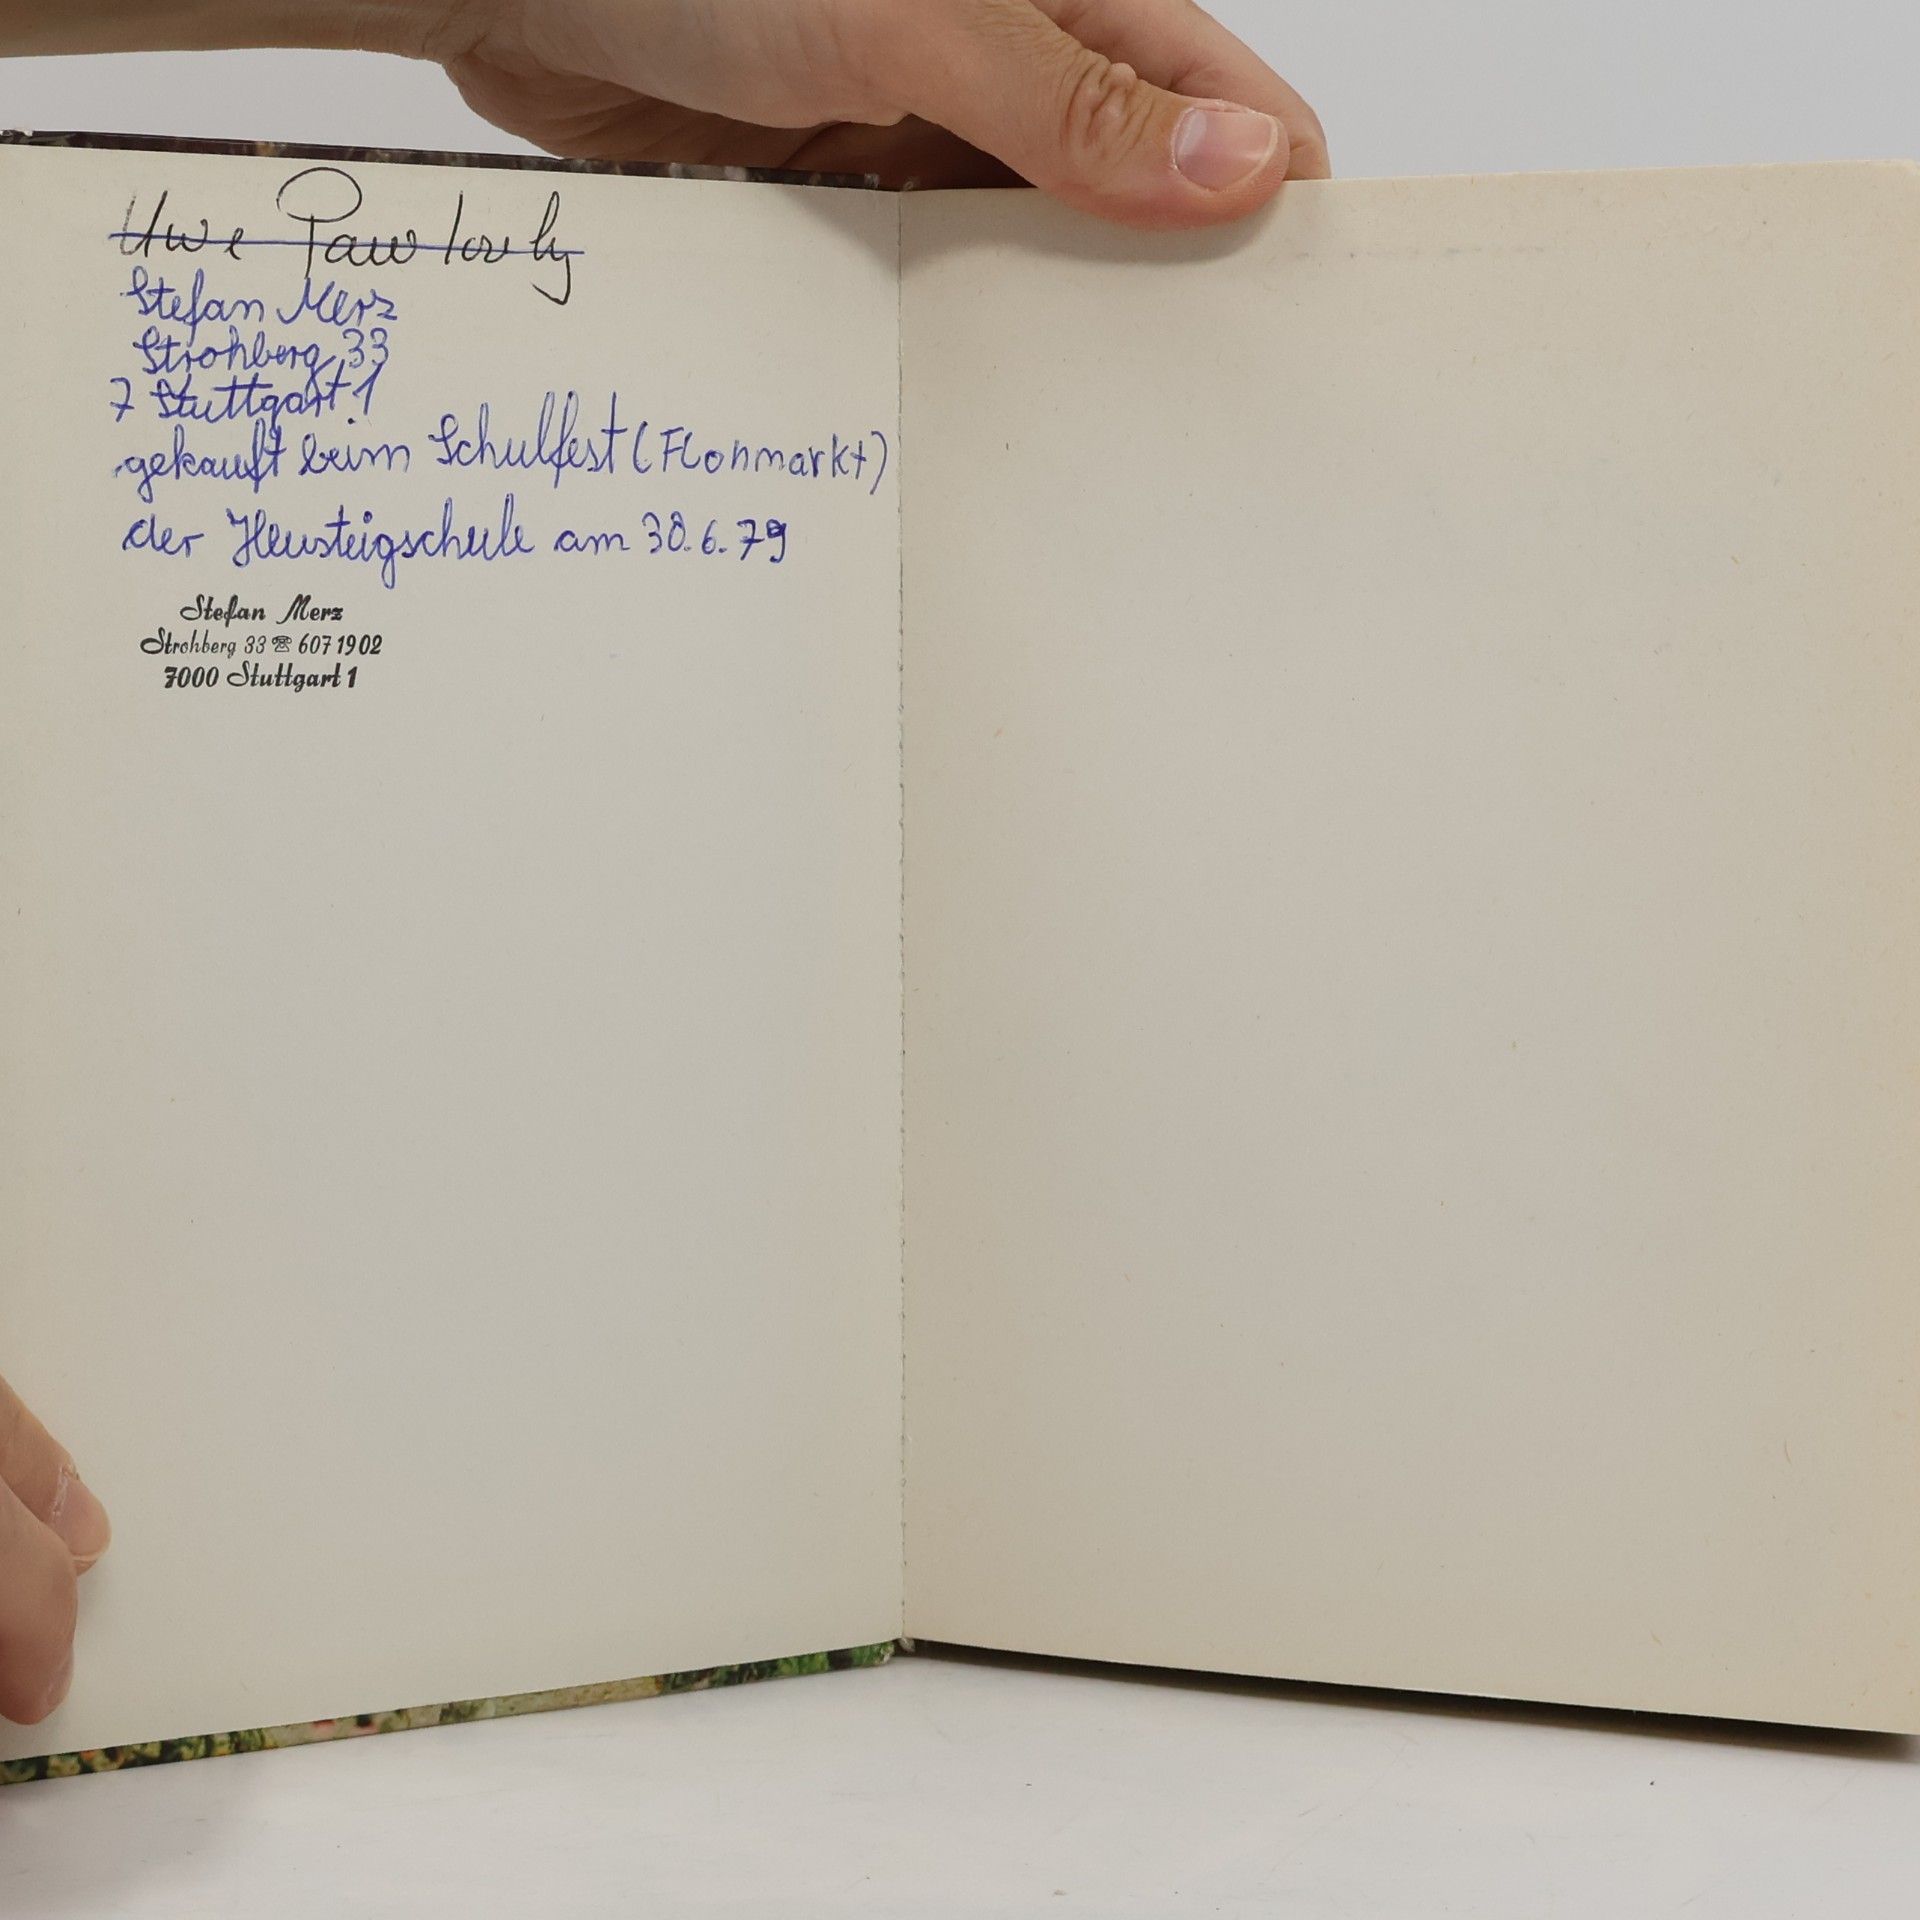 Uwe
Stefan Merz
Strohberg 33
7 Stuttgart 1
gekauft beim Schulfest (Flohmarkt)
der Heusteigschule am 30.6.79
Stefan Merz
Strohberg 33 ☎ 607 19 02
7000 Stuttgart 1